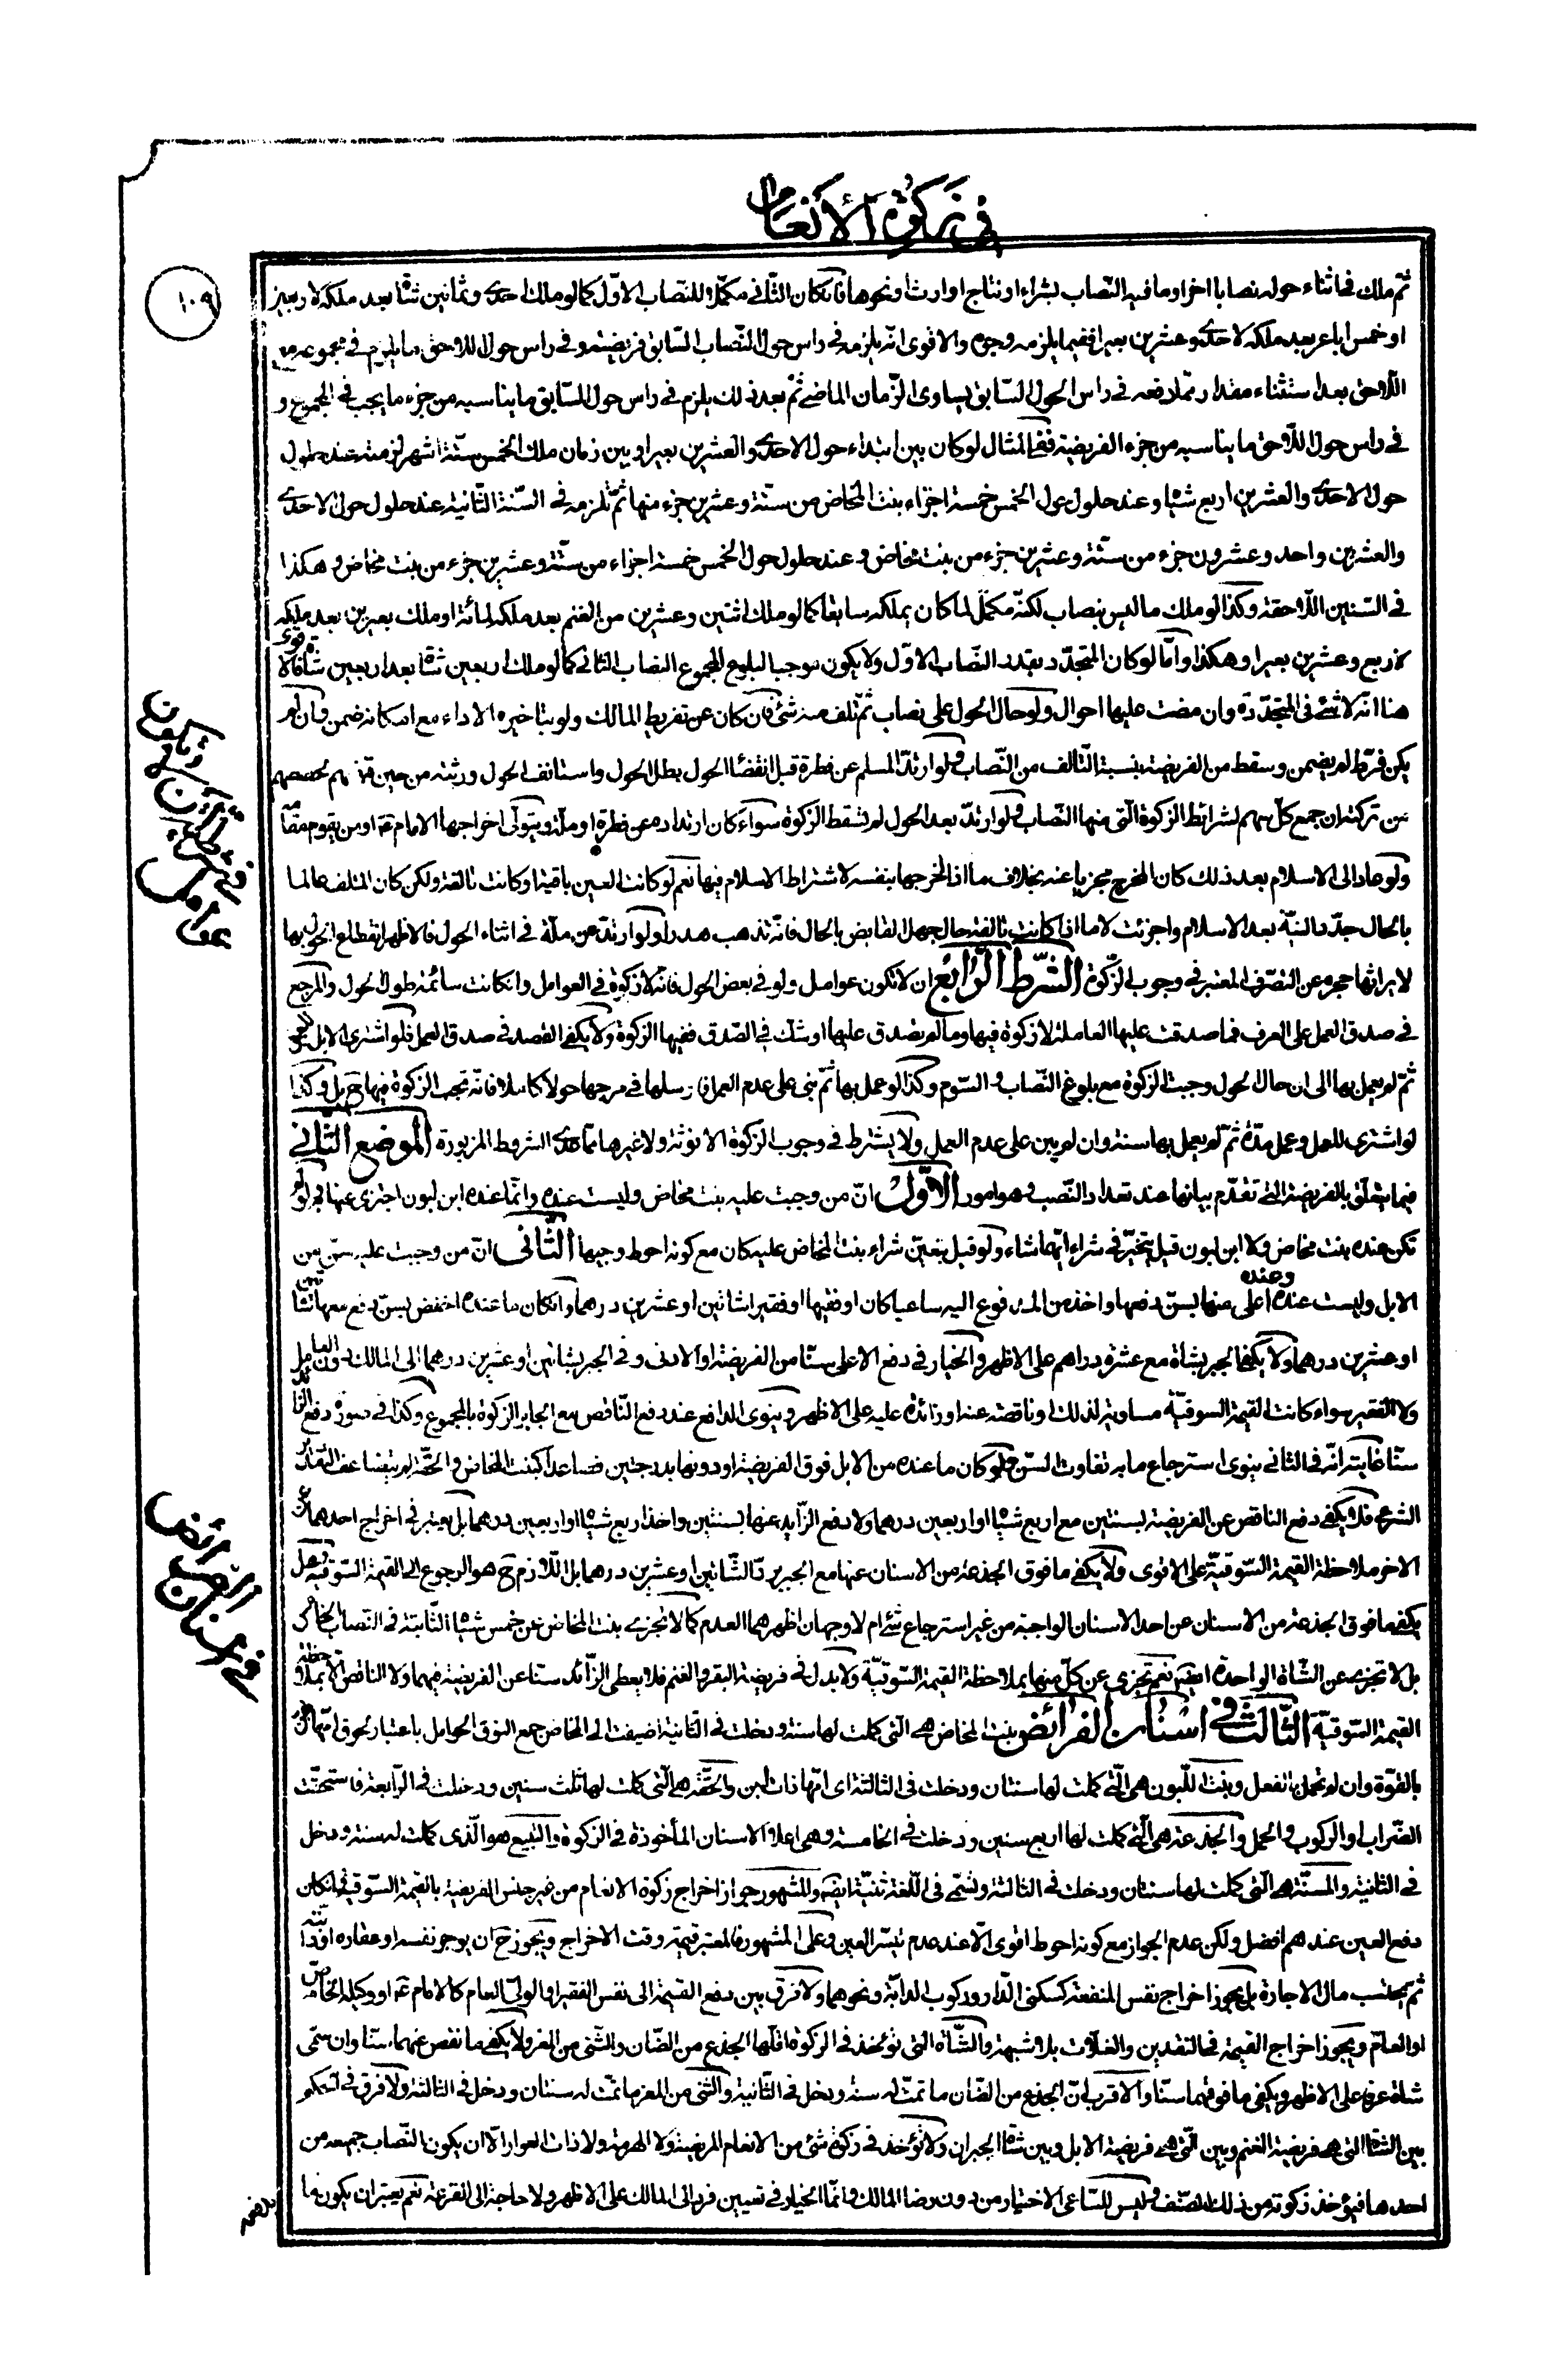 في زكوة الأنعام
١٠٩
ثم ملك في اثناء حوله نصابا اخر او ما فيه النصاب بشراء او نتاج او ارث او نحوها فان كان الثاني مكملا للنصاب الاول كما لو ملك احدى وثمانين شاة بعد ملكه لاربعين
او خمس اباعر بعد ملكه لاحدى وعشرين بعيرا ففيما يلزمه وجوه والاقوى انه يلزمه في راس حول النصاب السابق فريضته وفي راس حول اللاحق ما يلزم في مجموعه مع
اللاحق بعد استثناء مقدار مما دفعه في راس الحول السابق يساوى الزمان الماضي ثم بعد ذلك يلزم في راس حول السابق ما يناسبه من جزء ما يجب في المجموع و
في راس حول اللاحق ما يناسبه من جزء الفريضة ففي المثال لو كان بين ابتداء حول الاحدى والعشرين بعيرا وبين زمان ملك الخمس ستة اشهر لزمته عند حلول
حول الاحدى والعشرين اربع شياه وعند حلول حول الخمس خمسة اجزاء بنت المخاض من ستة وعشرين جزء منها ثم تلزمه في السنة الثانية عند حلول حول الاحدى
والعشرين واحد وعشرون جزء من ستة وعشرين جزء من بنت مخاض وعند حلول حول الخمس خمسة اجزاء من ستة وعشرين جزء من بنت مخاض وهكذا
في السنين اللاحقة وكذا لو ملك ما ليس بنصاب لكنه مكمل لما كان يملكه سابقا كما لو ملك اثنتين وعشرين من الغنم بعد ملكه لمائة او ملك بعيرين بعد ملكه
لاربع وعشرين بعيرا وهكذا واما لو كان المتجدد بقدر النصاب الاول ولا يكون موجبا لبلوغ المجموع النصاب الثاني كما لو ملك اربعين شاة بعد اربعين شاة فالاقوى
هنا انه لا شئ في المتجددة وان مضت عليها احوال ولو حال الحول على نصاب ثم تلف منه شئ فان كان عن تفريط المالك ولو بتاخيره الاداء مع امكانه ضمن وان لم
يكن فرط لم يضمن وسقط من الفريضة بنسبة التالف من النصاب ولو ارتد المسلم عن فطرة قبل انقضاء الحول بطل الحول واستانف الحول ورثته من حين قسمتهم حصصهم
من تركته ان جمع كل سهم لشرائط الزكوة التي منها النصاب ولو ارتد بعد الحول لم تسقط الزكوة سواء كان ارتداده عن فطرة او ملة ويتولى اخراجها الامام ع او من يقوم مقامه
ولو عاد الى الاسلام بعد ذلك كان المخرج مجزيا عنه بخلاف ما اذا اخرجها بنفسه لاشتراط الاسلام فيها نعم لو كانت العين باقية او كانت تالفة ولكن كان المتلف عالما
بالحال جدد النية بعد الاسلام واجزئت لا ما اذا كانت تالفة حال جهل القابض بالحال فانه تذهب هدرا ولو ارتد عن ملة في اثناء الحول فالاظهر انقطاع الحول بها
لايراثها حجره عن التصرف المعتبر في وجوب الزكوة الشرط الرابع ان لا تكون عوامل ولو في بعض الحول فانه لا زكوة في العوامل وان كانت سائمة طول الحول والمرجع
في صدق العمل على العرف فما صدقت عليها العاملة لا زكوة فيها وما لم يصدق عليها او شك في الصدق ففيها الزكوة ولا يكفي القصد في صدق العمل فلو اشترى الابل للعمل
ثم لم يعمل بها الى ان حال الحول وجبت الزكوة مع بلوغ النصاب والسوم وكذا لو عمل بها ثم بنى على عدم العمل فارسلها في مرجها حولا كاملا فانه تجب الزكوة فيها ح بل وكذا
لو اشترى للعمل وعمل مدة ثم لم يعمل بها سنة وان لم يبن على عدم العمل ولا يشترط في وجوب الزكوة الانوثة ولا غيرها مما عدى الشروط المزبورة الموضع الثاني
فيما يتعلق بالفريضة التي تقدم بيانها عند تعداد النصب وهو امور الاول ان من وجبت عليه بنت مخاض وليست عنده وانما عنده ابن لبون اجتزى عنها به ولو لم
تكن عنده بنت مخاض ولا ابن لبون قيل يتخير في شراء ايهما شاء ولو قيل بتعين شراء بنت المخاض عليه كان مع كونه احوط وجيها الثاني ان من وجبت عليه سن من
الابل وليست عنده وعنده اعلى منها بسن دفعها واخذ من المدفوع اليه ساعيا كان او فقيها او فقيرا شاتين او عشرين درهما وان كان ما عنده اخفض بسن دفع معها شاتين
او عشرين درهما ولا يكفي الجبر بشاة مع عشرة دراهم على الاظهر والخيار في دفع الاعلى سنا من الفريضة او الادنى وفي الجبر بشاتين او عشرين درهما الى المالك دون العامل
ولا الفقير سواء كانت القيمة السوقية مساوية لذلك او ناقصة عنه او زائدة عليه على الاظهر وينوى الدافع عند دفع الناقص مع الجابر الزكوة بالمجموع وكذا في صورة دفع الزائد
سنا غايته انه في الثاني ينوى استرجاع ما به تفاوت السن ولو كان ما عنده من الابل فوق الفريضة او دونها بدرجتين فصاعدا كبنت المخاض والحقة لم يتضاعف التقدير
الشرعي فلا يكفي دفع الناقص عن الفريضة بسنتين مع اربع شياه او اربعين درهما ولا دفع الزايد عنها بسنتين واخذ اربع شياه او اربعين درهما بل يعتبر في اخراج احدهما عن
الاخر ملاحظة القيمة السوقية على الاقوى ولا يكفي ما فوق الجذعة من الاسنان عنها مع الجبر برد الشاتين او عشرين درهما بل اللازم ح هو الرجوع الى القيمة السوقية وهل
يكفي ما فوق الجذعة من الاسنان عن احد الاسنان الواجبة من غير استرجاع شئ ام لا وجهان اظهرهما العدم كما لا تجزى بنت المخاض عن خمس شياه الثابتة في النصاب الخامس
بل لا تجزى عن الشاة الواحدة ايضا نعم تجزى عن كل منها بملاحظة القيمة السوقية ولا بدل في فريضة البقر والغنم فلا يعطى الزائد سنا عن الفريضة فيهما ولا الناقص الا بملاحظة
القيمة السوقية الثالث في اسنان الفرائض بنت المخاض هي التي كملت لها سنة ودخلت في الثانية اضيفت الى المخاض جمع النوق الحوامل باعتبار لحوق امها بهن
بالقوة وان لم تحمل بالفعل وبنت اللبون هي التي كملت لها سنتان ودخلت في الثالثة اى امها ذات لبن والحقة هي التي كملت لها ثلث سنين ودخلت في الرابعة فاستحقت
الضراب او الركوب والحمل والجذعة هي التي كملت لها اربع سنين ودخلت في الخامسة وهي اعلى الاسنان المأخوذة في الزكوة والتبيع هو الذى كملت له سنة ودخل
في الثانية والمسنة هي التي كملت لها سنتان ودخلت في الثالثة وتسمى في اللغة ثنية ايضا والمشهور جواز اخراج زكوة الانعام من غير جنس الفريضة بالقيمة السوقية وان كان
دفع العين عندهم افضل ولكن عدم الجواز مع كونه احوط اقوى الا عند عدم تيسر العين وعلى المشهور فالمعتبر قيمة وقت الاخراج ويجوز ح ان يوجر نفسه او عقاره او دابته
ثم يحتسب مال الاجارة بل يجوز اخراج نفس المنفعة كسكنى الدار وركوب الدابة ونحوهما ولا فرق بين دفع القيمة الى نفس الفقير او الولى العام كالامام ع او وكيله الخاص
او العام ويجوز اخراج القيمة في النقدين والغلات بلا شبهة والشاة التي تؤخذ في الزكوة اقلها الجذع من الضان والثني من المعز ولا يكفي ما نقص عنهما سنا وان سمى
شاة عرفا على الاظهر ويكفي ما فوقهما سنا والاقرب ان الجذع من الضان ما تمت له سنة ودخل في الثانية والثني من المعز ما تمت له سنتان ودخل في الثالثة ولا فرق في الحكم
بين الشاة التي هي فريضة الغنم وبين التي هي فريضة الابل وبين شاة الجبران ولا تؤخذ في زكوة شئ من الانعام المريضة ولا الهرمة ولا ذات العوار الا ان يكون النصاب جميعه من
احدها فيؤخذ زكوته من ذلك الصنف وليس للساعى الاختيار من دون رضا المالك وانما الخيار في تعيين فرد الى المالك على الاظهر ولا حاجة الى القرعة نعم يعتبر ان يكون ما
في اشتراط ان لا تكون عوامل
في اسنان الفرائض